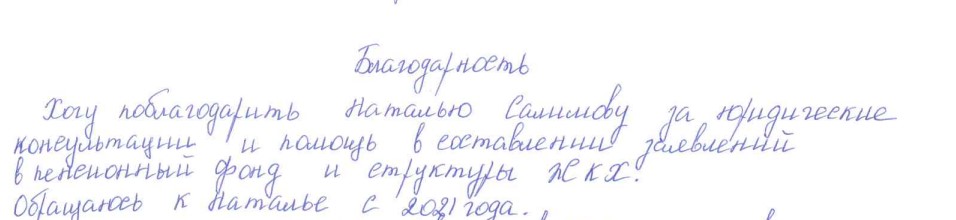 Благодарность
Хочу поблагодарить Наталью Салимову за юридические
консультации и помощь в составлении заявлений
в пенсионный фонд и структуры ЖКХ.
Обращаюсь к Наталье с 2021 года.